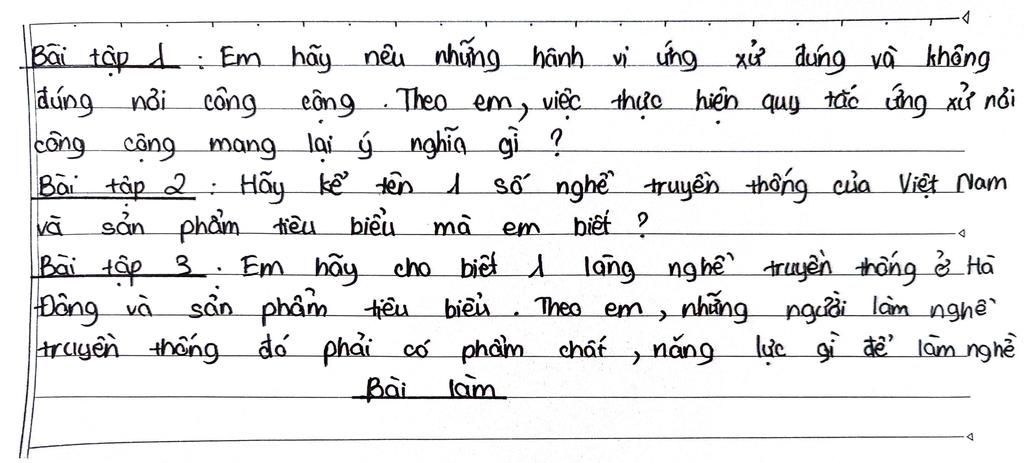 Bài tập 1 : Em hãy nêu những hành vi ứng xử đúng và không
đúng nơi công cộng . Theo em, việc thực hiện quy tắc ứng xử nơi
công cộng mang lại ý nghĩa gì ?
Bài tập 2 : Hãy kể tên 1 số nghề truyền thống của Việt Nam
và sản phẩm tiêu biểu mà em biết ?
Bài tập 3 . Em hãy cho biết 1 làng nghề truyền thống ở Hà
Đông và sản phẩm tiêu biểu . Theo em, những người làm nghề
truyền thống đó phải có phẩm chất, năng lực gì để làm nghề
Bài làm